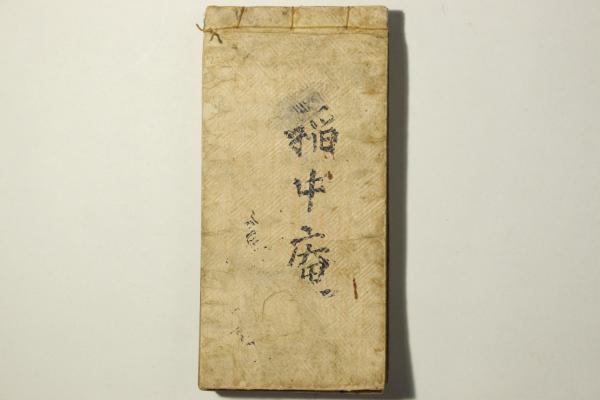 稲中庵